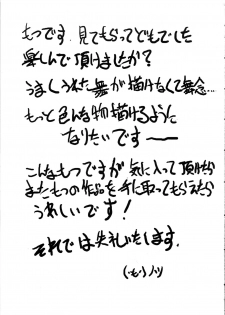 もつです。見てもらってどもでした
楽しんで頂けましたか?
うまくうれた舞が描けなくて無念…
もっと色んな物描けるように
なりたいです——
こんなもつですが気に入って頂けたら
またもつの作品を手に取ってもらえたら
うれしいです!
それでは失礼いたします。